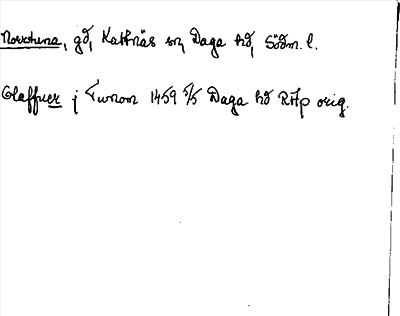 Norrtuna, gd, Kattnäs sn, Daga hd, Södm. l.
Olaffuer j Twnom 1459 5/5 Daga hd RAp orig.